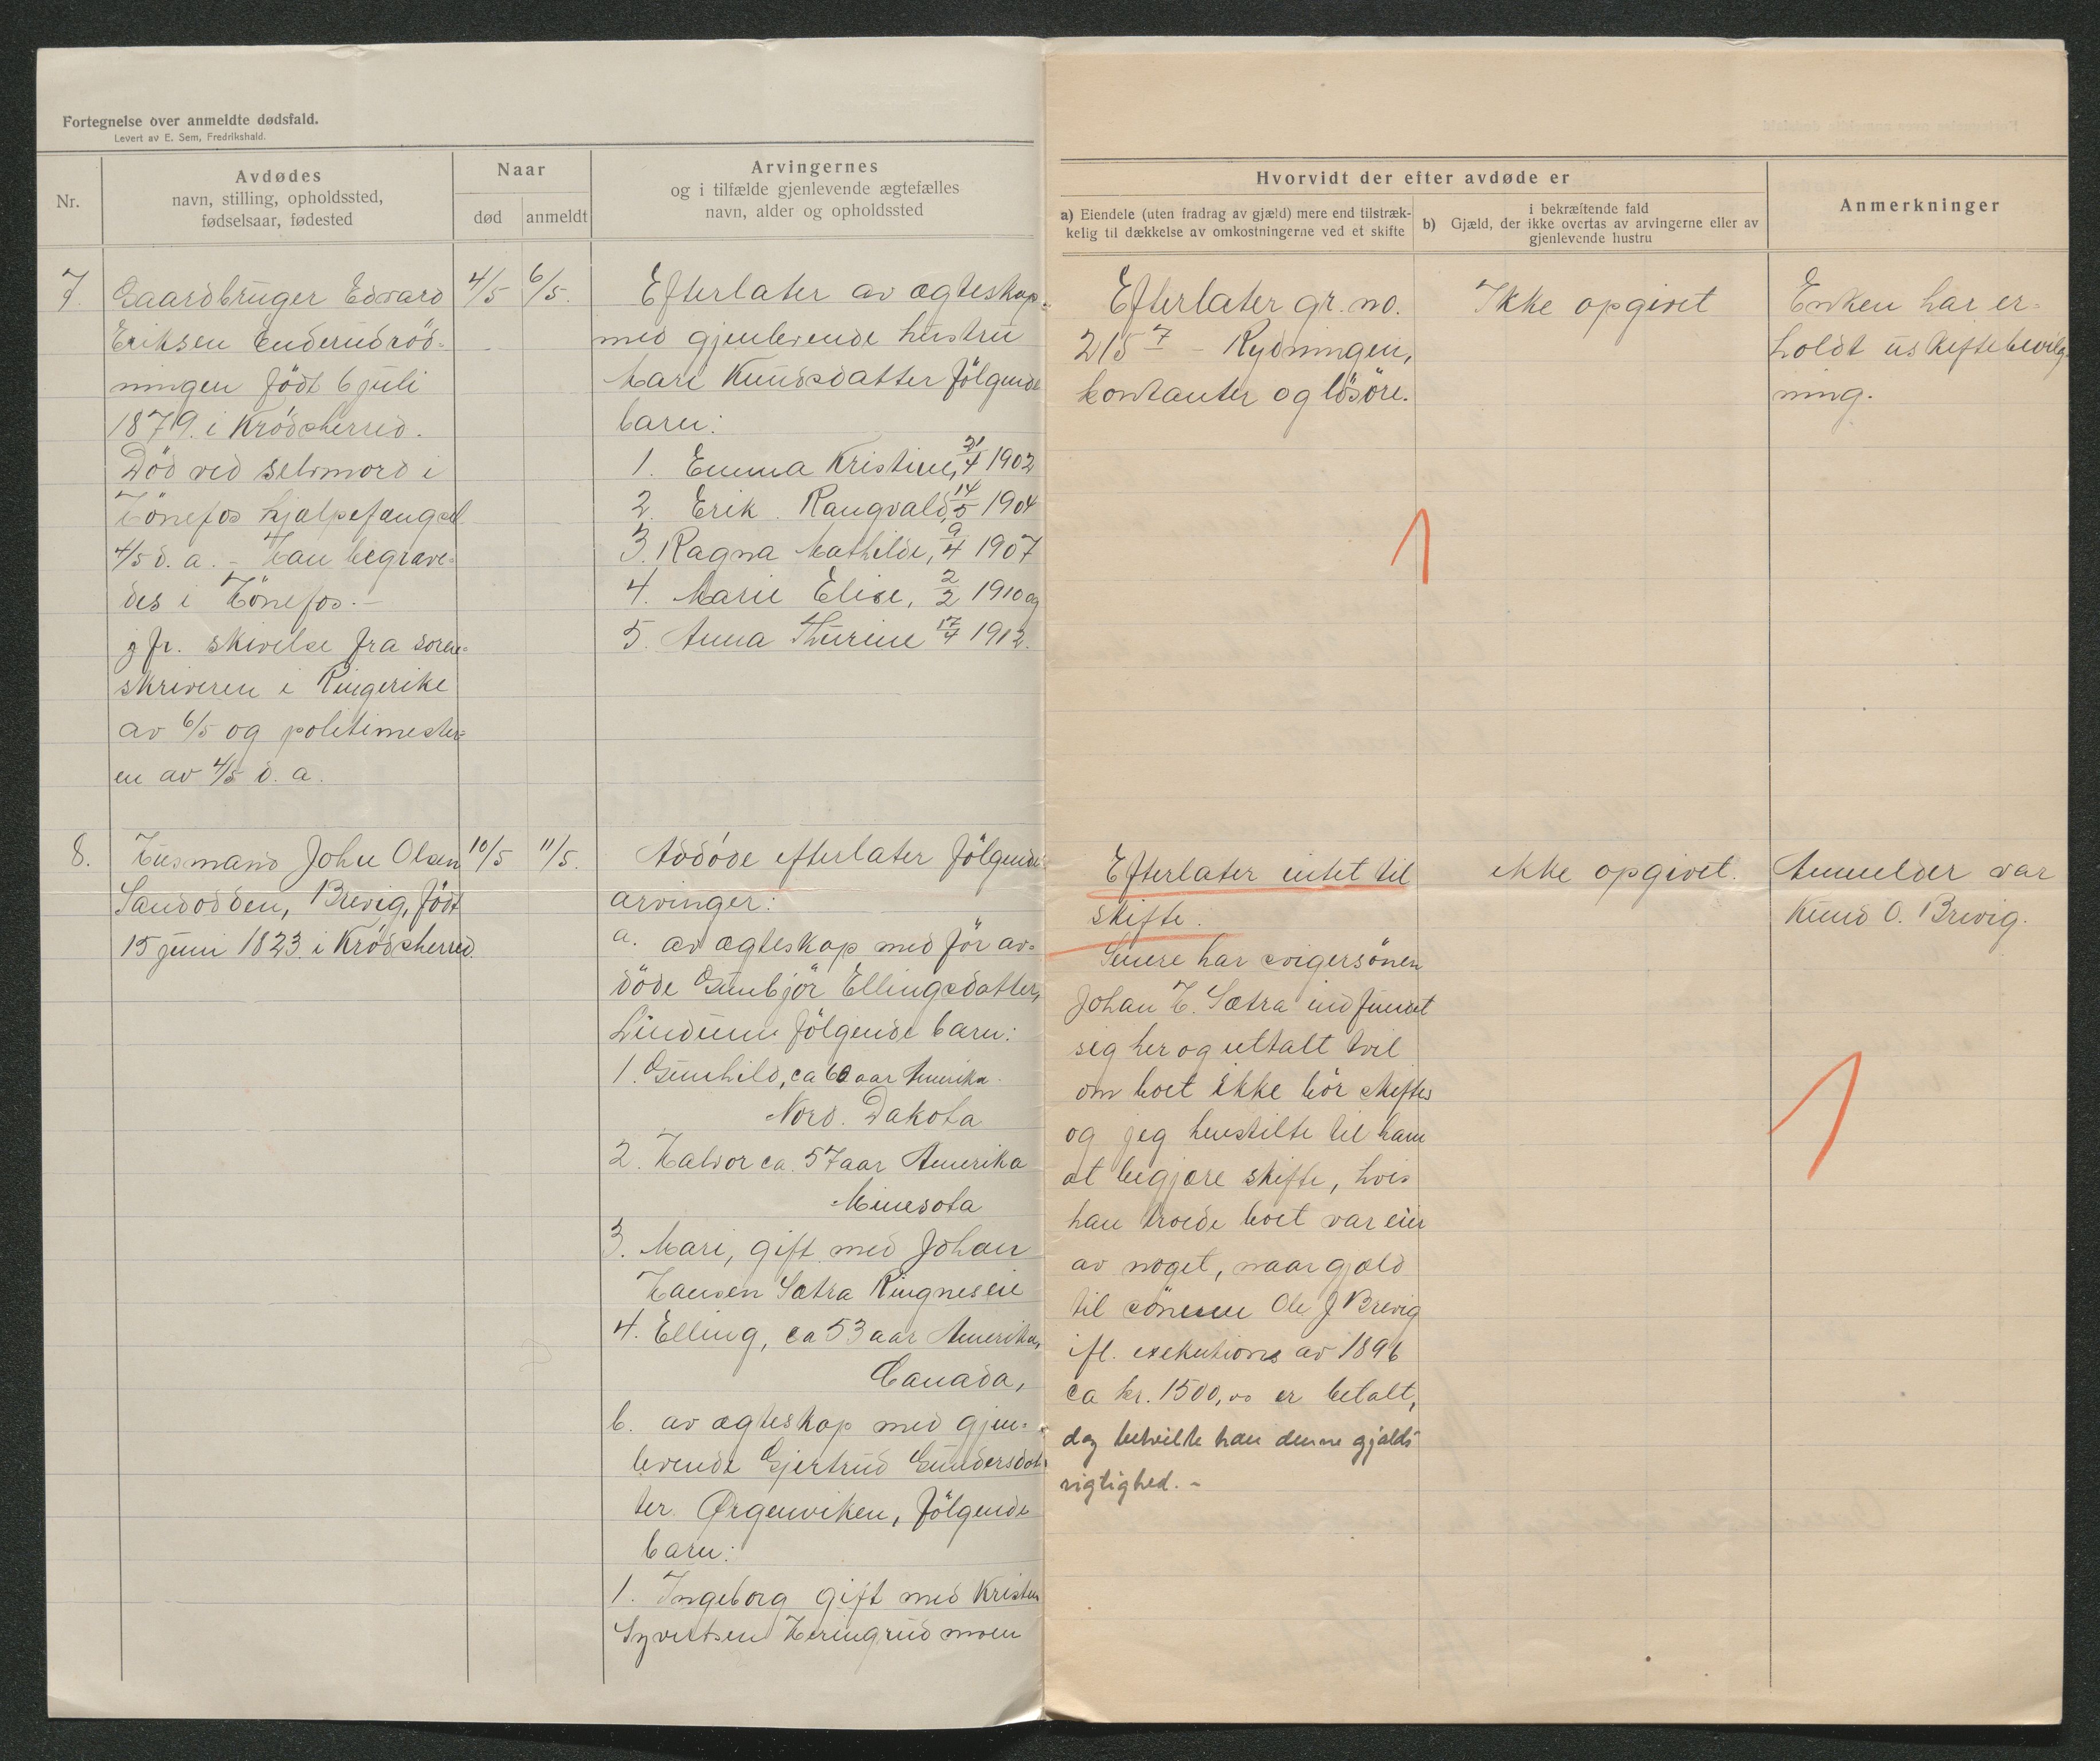 Fortegnelse over anmeldte dødsfald.
Levert av E. Sem, Fredrikshald.
Nr.
Avdødes
navn, stilling, opholdssted,
fødselsaar, fødested
Naar
død
anmeldt
Arvingernes
og i tilfælde gjenlevende ægtefælles
navn, alder og opholdssted
Hvorvidt der efter avdøde er
a) Eiendele (uten fradrag av gjæld) mere end tilstræk-
kelig til dækkelse av omkostningerne ved et skifte
b)
i bekræftende fald
Gjæld, der ikke overtas av arvingerne eller av
gjenlevende hustru
Anmerkninger
7.
Gaardbruger Edvard
Eriksen Enderudröd-
ningen födt 6 juli
1879. i Krödsherred.
Död ved selvmord i
Hönefos hjælpefængsel
4/5 d. a. - Han begrave-
des i Hönefos. -
jfr. skrivelse fra soren-
skriveren i Ringerike
av 6/5 og politimester-
en av 4/5 d. a.
4/5
6/5.
Efterlater av ægteskap
med gjenlevende hustru
Mari Knudsdatter fölgende
barn:
1. Emma Kristine, 21/4 1902
2. Erik Rangvald, 14/5 1904
3. Ragna Mathilde, 9/4 1907
4. Marie Elise, 2/2 1910 og
5. Anna Thurine 17/4 1912.
Efterlater gr. no.
215 7 - Rydningen,
kontanter og lösöre.
Ikke opgivet
Enken har er-
holdt uskiftebevilg-
ning.
8.
Husmand John Olsen
Sandodden, Brevig, födt
15 juni 1823. i Krödsherred.
10/5
11/5.
Avdöde efterlater fölgende
arvinger:
a. av ægteskap med för av-
döde Gunbjör Ellingsdatter,
Lindunn fölgende barn:
1. Gunhild, ca 60 aar Amerika.
Nord. Dakota
2. Halvor ca. 57 aar Amerika
Minesota
3. Mari, gift med Johan
Hansen Sætra Ringneseie
4. Elling, ca 53 aar Amerika,
Canada,
b. av ægteskap med gjen-
levende Gjertrud Gundersdat-
ter Ørgenviken, fölgende
barn:
1. Ingeborg gift med Kristen
Syvertsen Heringrud moen
Efterlater intet til
skifte.
Senere har svigersönen
Johan H. Sætra indfundet
sig her og uttalt tvil
om boet ikke bör skiftes
og jeg henstilte til ham
at begjære skifte, hvis
han troede boet var eier
av noget, naar gjæld
til sönnen Ole J Brevig
ifl. exekutions av 1896
ca kr. 1500,00 er betalt,
dog betvilte han denne gjælds
rigtighed. -
ikke opgivet.
Anmelder var
Knud O. Brevig.